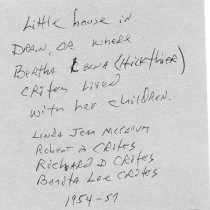 Little house in
DRAIN, OR where
BERTHA LEONA (HICKTHIER)
CRITES Lived
with her children.
LINDA JEAN MCCRUM
ROBERT D CRITES
RICHARD D CRITES
BONITA LEE CRITES
1954-57